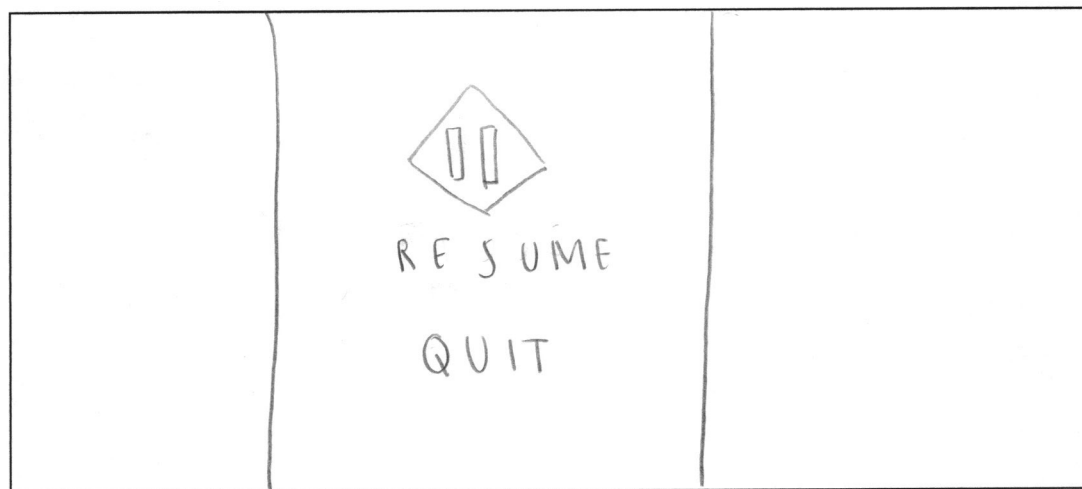 RESUME
QUIT